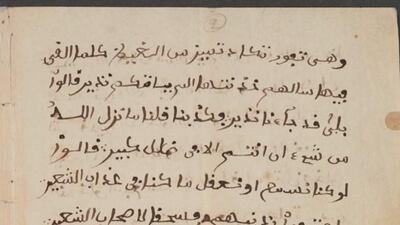 وهى تفور تكاد تميز من الغيظ كلما القى
فيها سالهم خزنتها الم ياتكم نذير قالوا
بلى قد جاءنا نذير فكذبنا قلنا ما نزل الله
من شىء ان انتم الا فى ضلل كبير قالوا
لو كنا نسمع او نعقل ما كنا فى عذاب الشعير
بذنبهم فسحقا لاصحاب الشعير